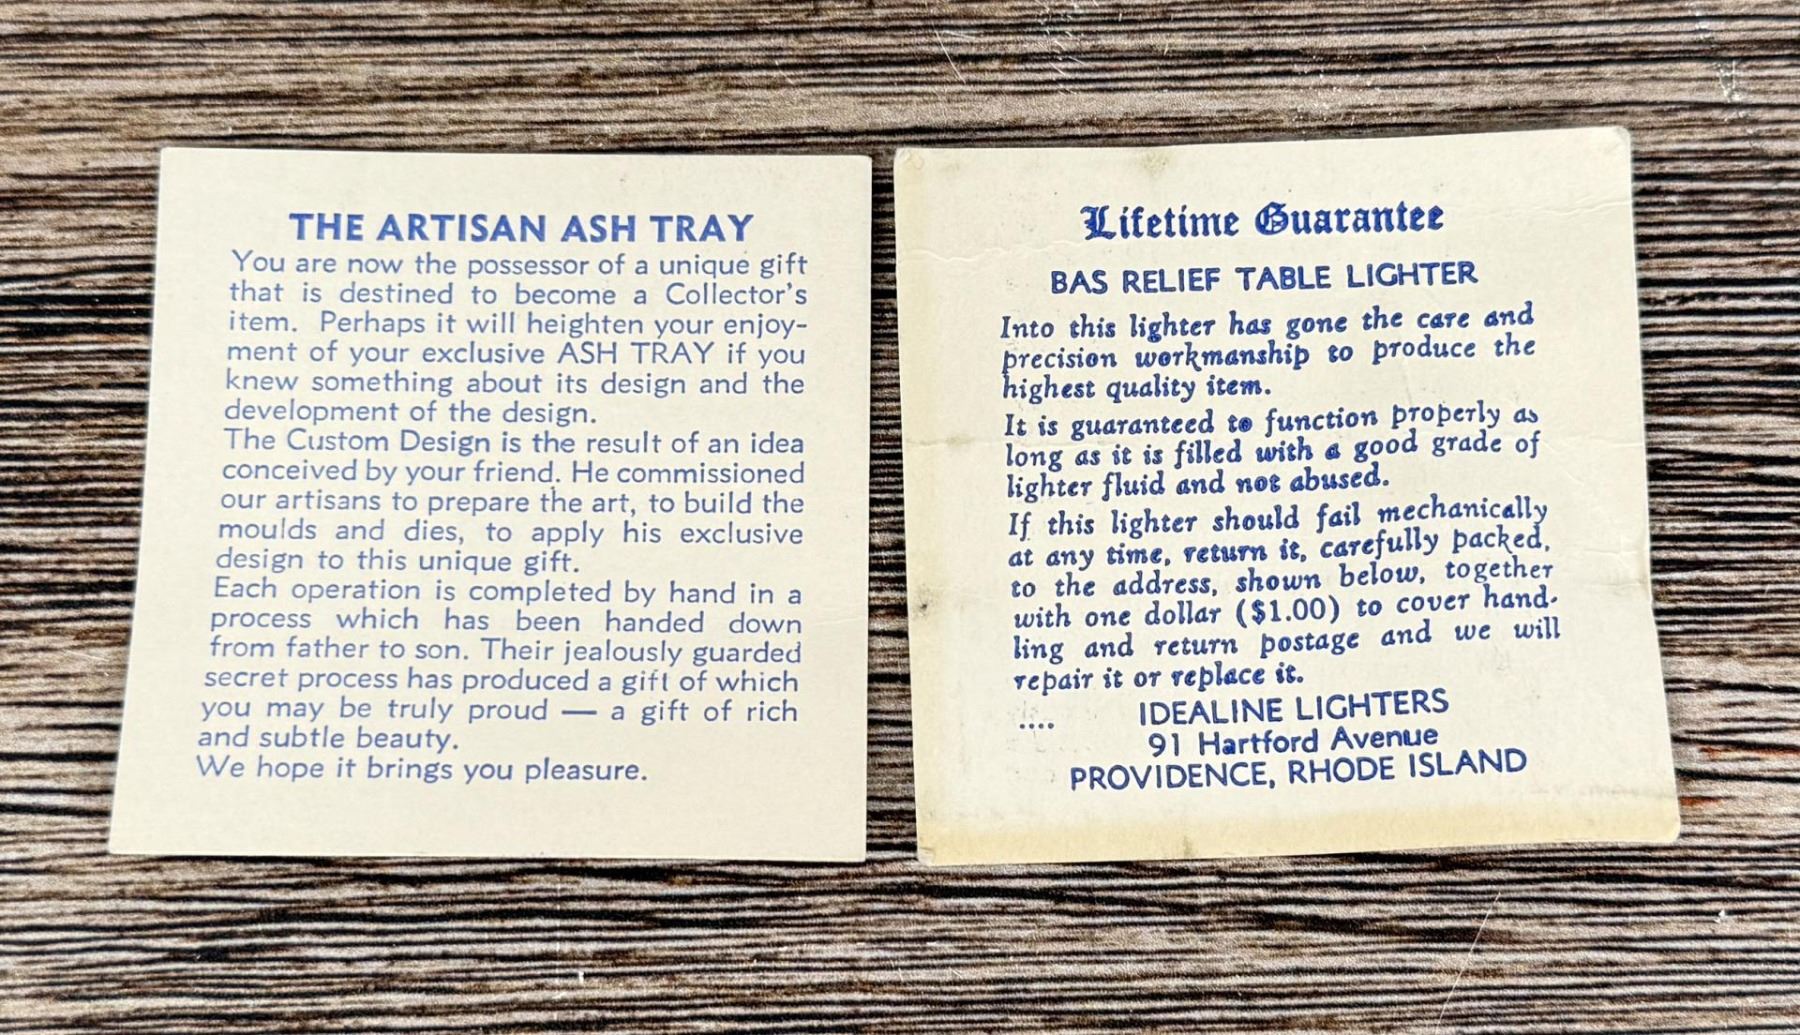 THE ARTISAN ASH TRAY
You are now the possessor of a unique gift
that is destined to become a Collector's
item. Perhaps it will heighten your enjoy-
ment of your exclusive ASH TRAY if you
knew something about its design and the
development of the design.
The Custom Design is the result of an idea
conceived by your friend. He commissioned
our artisans to prepare the art, to build the
moulds and dies, to apply his exclusive
design to this unique gift.
Each operation is completed by hand in a
process which has been handed down
from father to son. Their jealously guarded
secret process has produced a gift of which
you may be truly proud — a gift of rich
and subtle beauty.
We hope it brings you pleasure.
Lifetime Guarantee
BAS RELIEF TABLE LIGHTER
Into this lighter has gone the care and
precision workmanship to produce the
highest quality item.
It is guaranteed to function properly as
long as it is filled with a good grade of
lighter fluid and not abused.
If this lighter should fail mechanically
at any time, return it, carefully packed,
to the address, shown below, together
with one dollar ($1.00) to cover hand-
ling and return postage and we will
repair it or replace it.
.... IDEALINE LIGHTERS
91 Hartford Avenue
PROVIDENCE, RHODE ISLAND